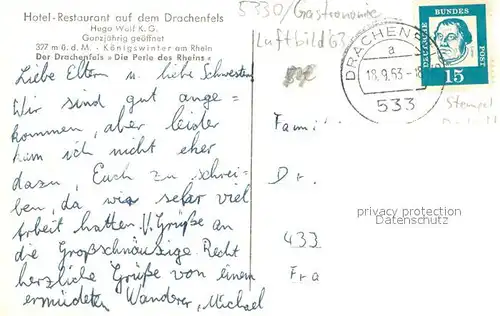 Hotel-Restaurant auf dem Drachenfels
Hugo Wolf K.G.
Ganzjährig geöffnet
327 m ü. d. M. - Königswinter am Rhein
Der Drachenfels » Die Perle des Rheins «
5330/Gastronomie
Luftbild 63
DRACHENF
a
18.9.63-18
533
DEUTSCHE BUNDESPOST
15
Stempel
Liebe Eltern u. liebe Schwester
Wir sind gut ange=
kommen, aber leider
kam ich nicht eher
dazu, Euch zu schrei=
ben, da wir sehr viel
Arbeit hatten. V. Grüße an
die Großschnäuzige. Recht
herzliche Grüße von einem
ermüdeten Wanderer, Michael
Famili
Dr.
433
Fra
privacy protection
Datenschutz